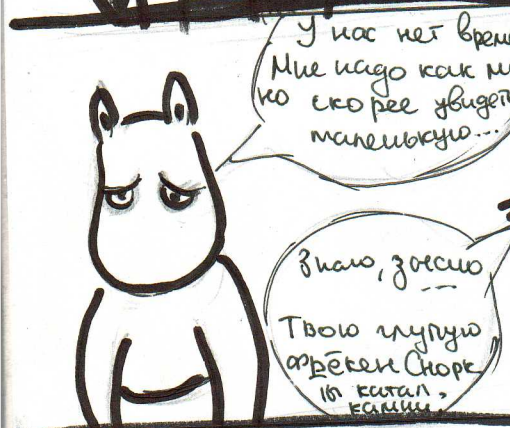 У нас нет време
Мне надо как м
но скорее увидет
маленькую...
Знаю, знаю
Твою глупую
фрёкен Снорк